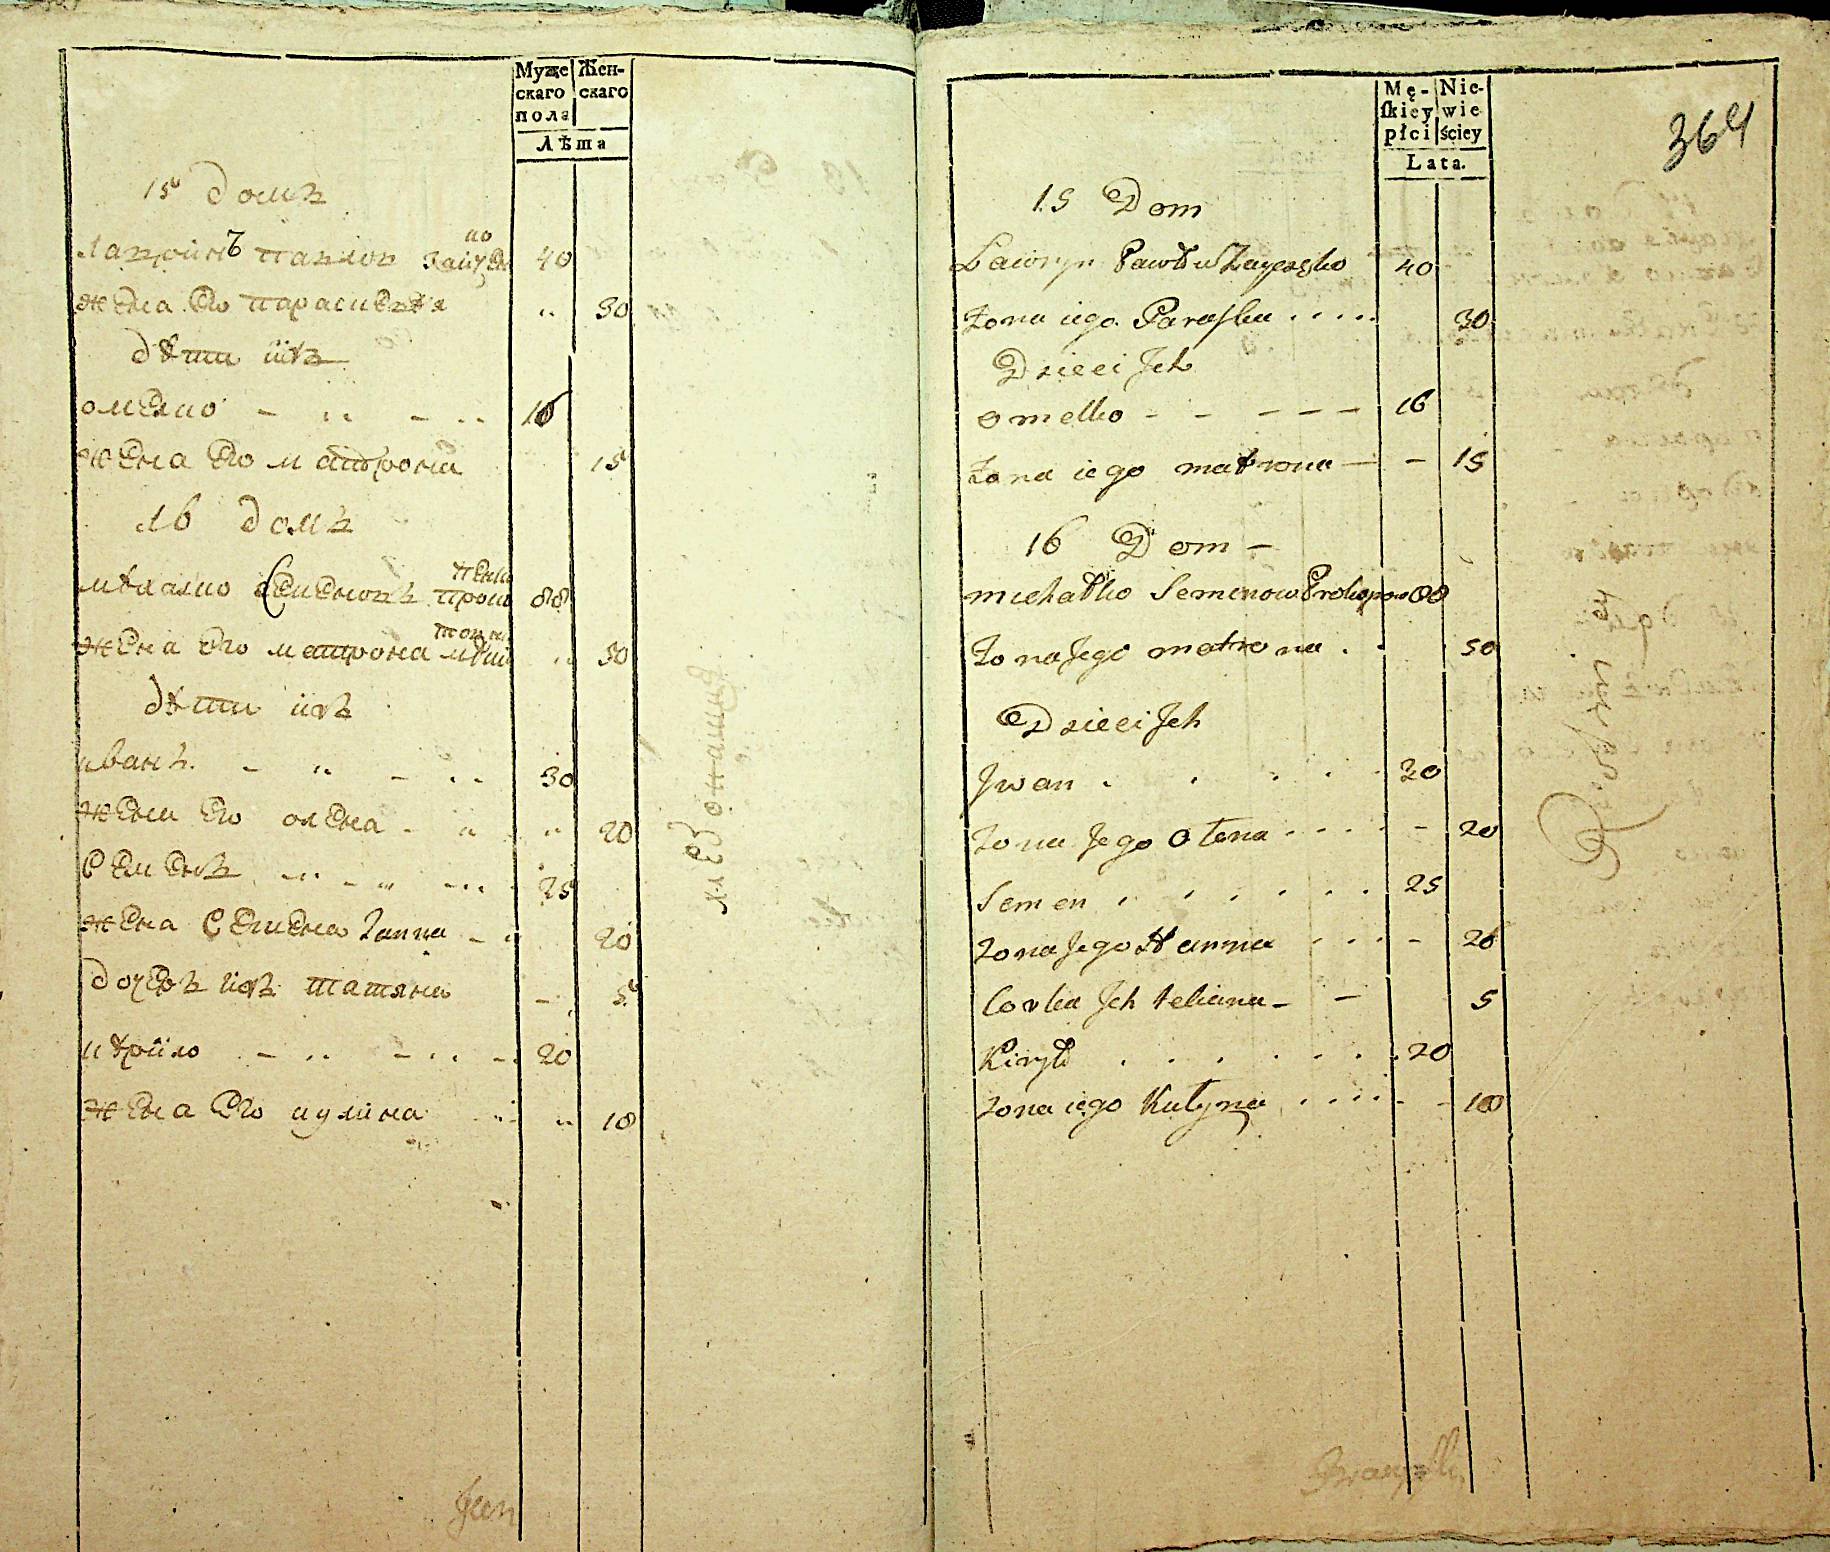 Муже
скаго
пола
Жен-
скаго
Лѣта
15 домъ
Лавринъ павлов Зайчен
ко
40
жена Его параскевѣя 30
дѣти ихъ
омелко 16
жена Его матрона 15
16 домъ
михалко Семеновъ проко
пенко
88
жена Его матрона 50
дѣти ихъ
иванъ 30
жена Его олена 20
Семенъ 25
жена Семена ганна 20
дочеръ ихъ татяна 5
кирило 20
жена Его акулина 18
Jan
364
Mę-
ſkiey
płci
Nie-
wie
ściey
Lata.
15 Dom
Lawryn Pawłow Zayczęko 40
Zona iego Paraſka 30
Dzieci Jch
omelko 16
Zona iego matrona 15
16 Dom
michałko Semenow Prokopow 88
Zona Jego matrona 50
Dzieci Jch
Jwan 30
Zona Jego Olena 20
Semen 25
Zona Jego Hanna 20
Corka Jch teliana 5
Kiryło 20
Zona iego Kulyna 18